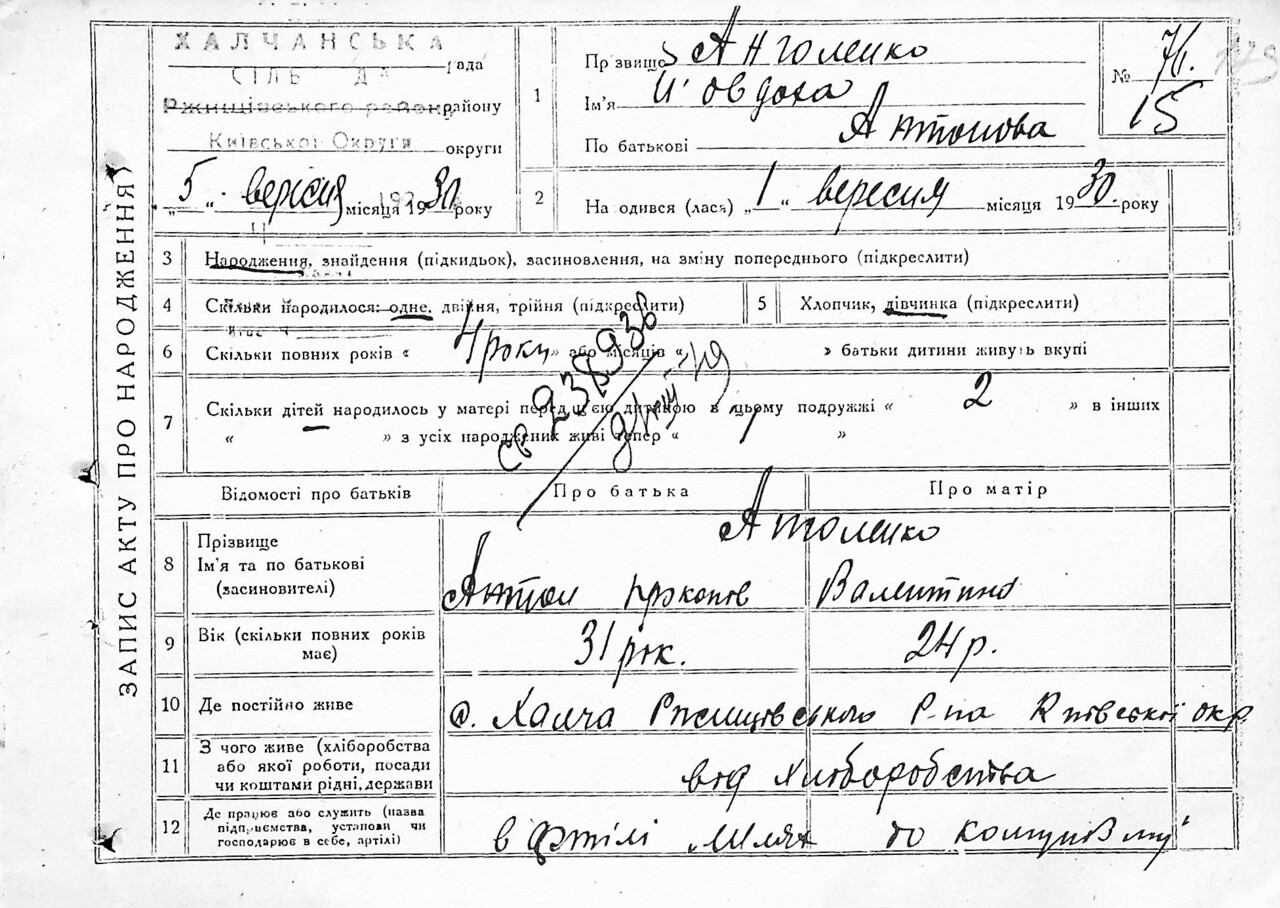 ЗАПИС АКТУ ПРО НАРОДЖЕННЯ
ХАЛЧАНСЬКА
СІЛЬ ДА рада
Ржищівського району району
Київської Округи округи
„5“ вересня місяця 1930 року
1
Прізвище
Ім'я Овдоха
По батькові Антонова
№ 71.
15
2
На одився (лася) „1“ вересня місяця 1930. року
3
Народження, знайдення (підкидьок), засиновлення, на зміну попереднього (підкреслити)
4
Скільки народилося: одне, двійня, трійня (підкреслити)
5
Хлопчик, дівчинка (підкреслити)
6
Скільки повних років « 4 роки » або місяців « » батьки дитини живуть вкупі
7
Скільки дітей народилось у матері перед ц'єю дитиною в цьому подружжі « 2 » в інших
« » з усіх народжених живі тепер « 1 »
Відомості про батьків
Про батька
Про матір
8
Прізвище
Ім'я та по батькові
(засиновителі)
Антон Прокопов
Валентина
9
Вік (скільки повних років
має)
31 рок.
24 р.
10
Де постійно живе
с. Халча Ржищівського Р-на Київської окр.
11
З чого живе (хліборобства
або якої роботи, посади
чи коштами рідні, держави
від хліборобства
12
Де працює або служить (назва
підприємства, установи чи
господарює в себе, артілі)
в Артілі „Шлях до комунізму“